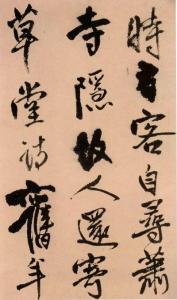 時有客自尋蕭
寺隱故人還寄
草堂詩舊年